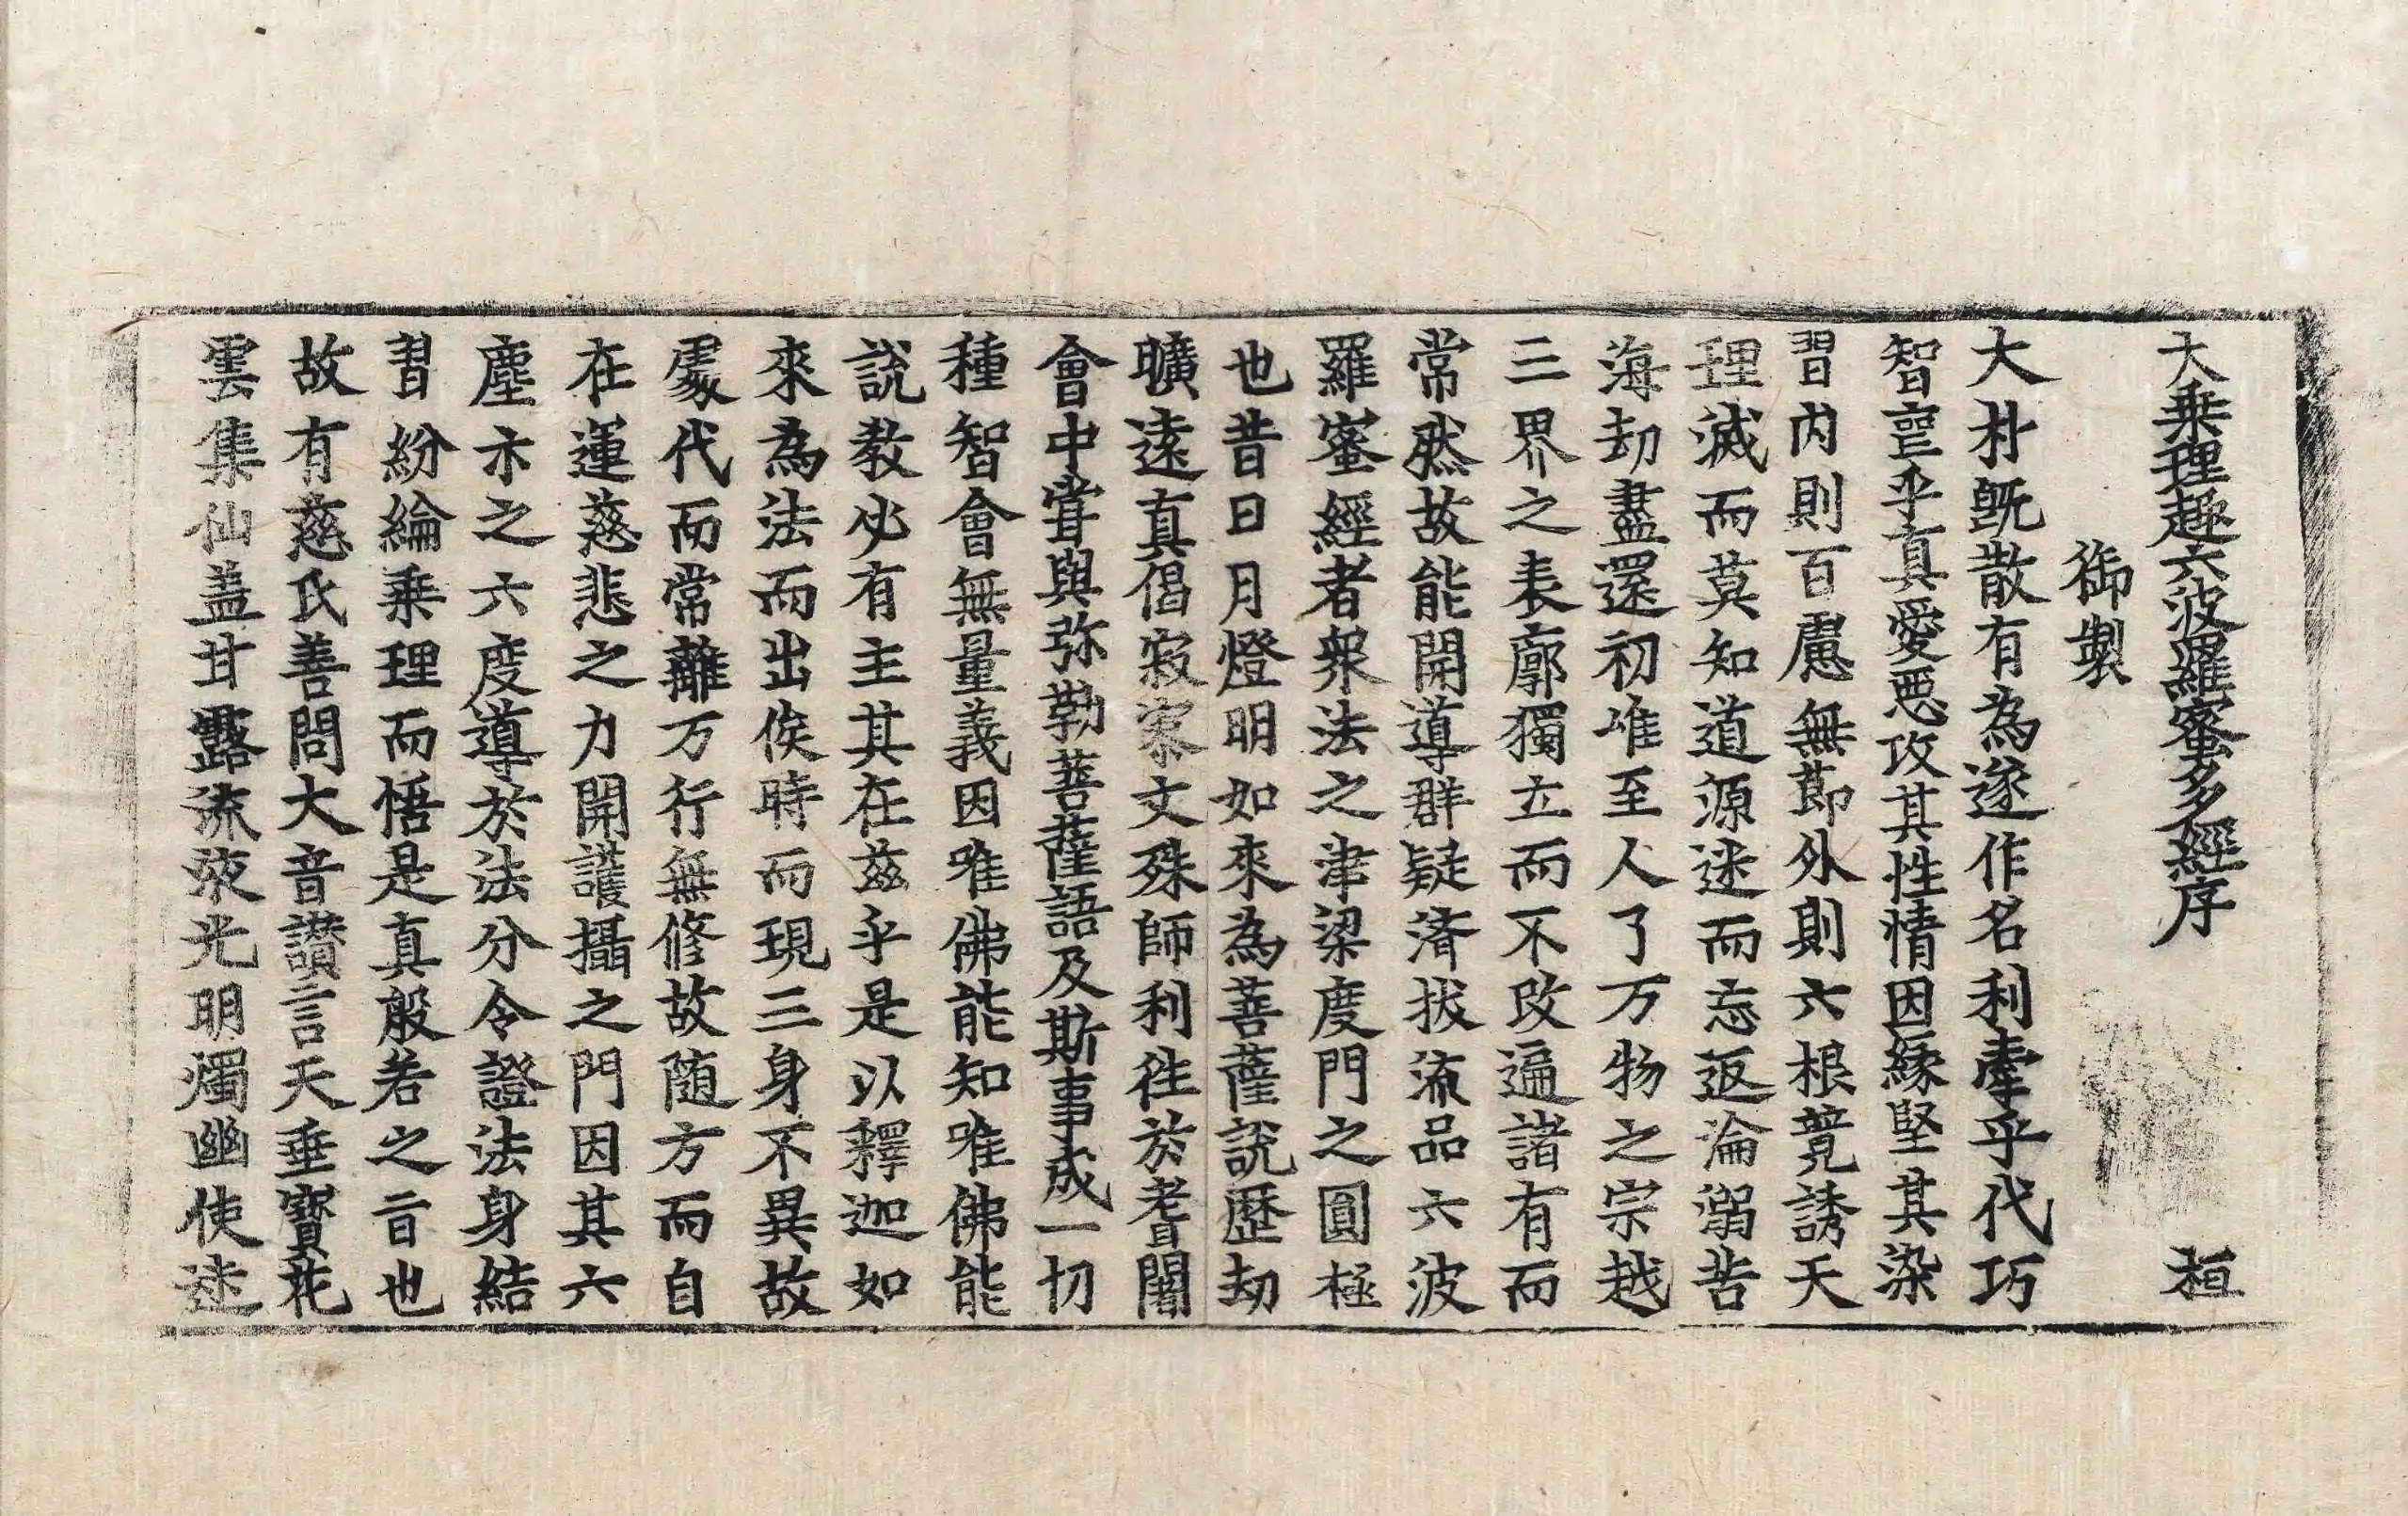 大乗理趣六波羅蜜多經序 桓
御製
大朴旣散有為遂作名利牽乎代巧
智亖乎真愛悪攻其性情因緣堅其染
習内則百慮無節外則六根競誘天
理滅而莫知道源迷而忘返淪溺苦
海劫盡還初唯至人了万物之宗越
三界之表廓獨立而不改遍諸有而
常然故能開導群疑済拔流品六波
羅蜜經者衆法之津梁度門之圓極
也昔日月燈明如來為菩薩說歷劫
曠遠真偈寂寥文殊師利徃於耆闍
會中甞與弥勒菩薩語及斯事成一切
種智會無量義因唯佛能知唯佛能
說教必有主其在兹乎是以釋迦如
來為法而出俟時而現三身不異故
處代而常離万行無修故随方而自
在運慈悲之力開護攝之門因其六
塵示之六度導於法分令證法身結
習紛綸乗理而悟是真般若之旨也
故有慈氏善問大音讃言天垂寶花
雲集仙盖甘露流液光明燭幽使迷